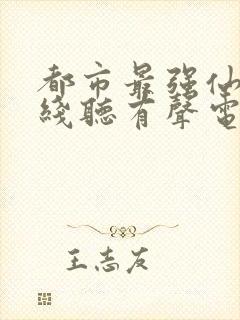 都市最强仙
綫聽有聲電
王志友